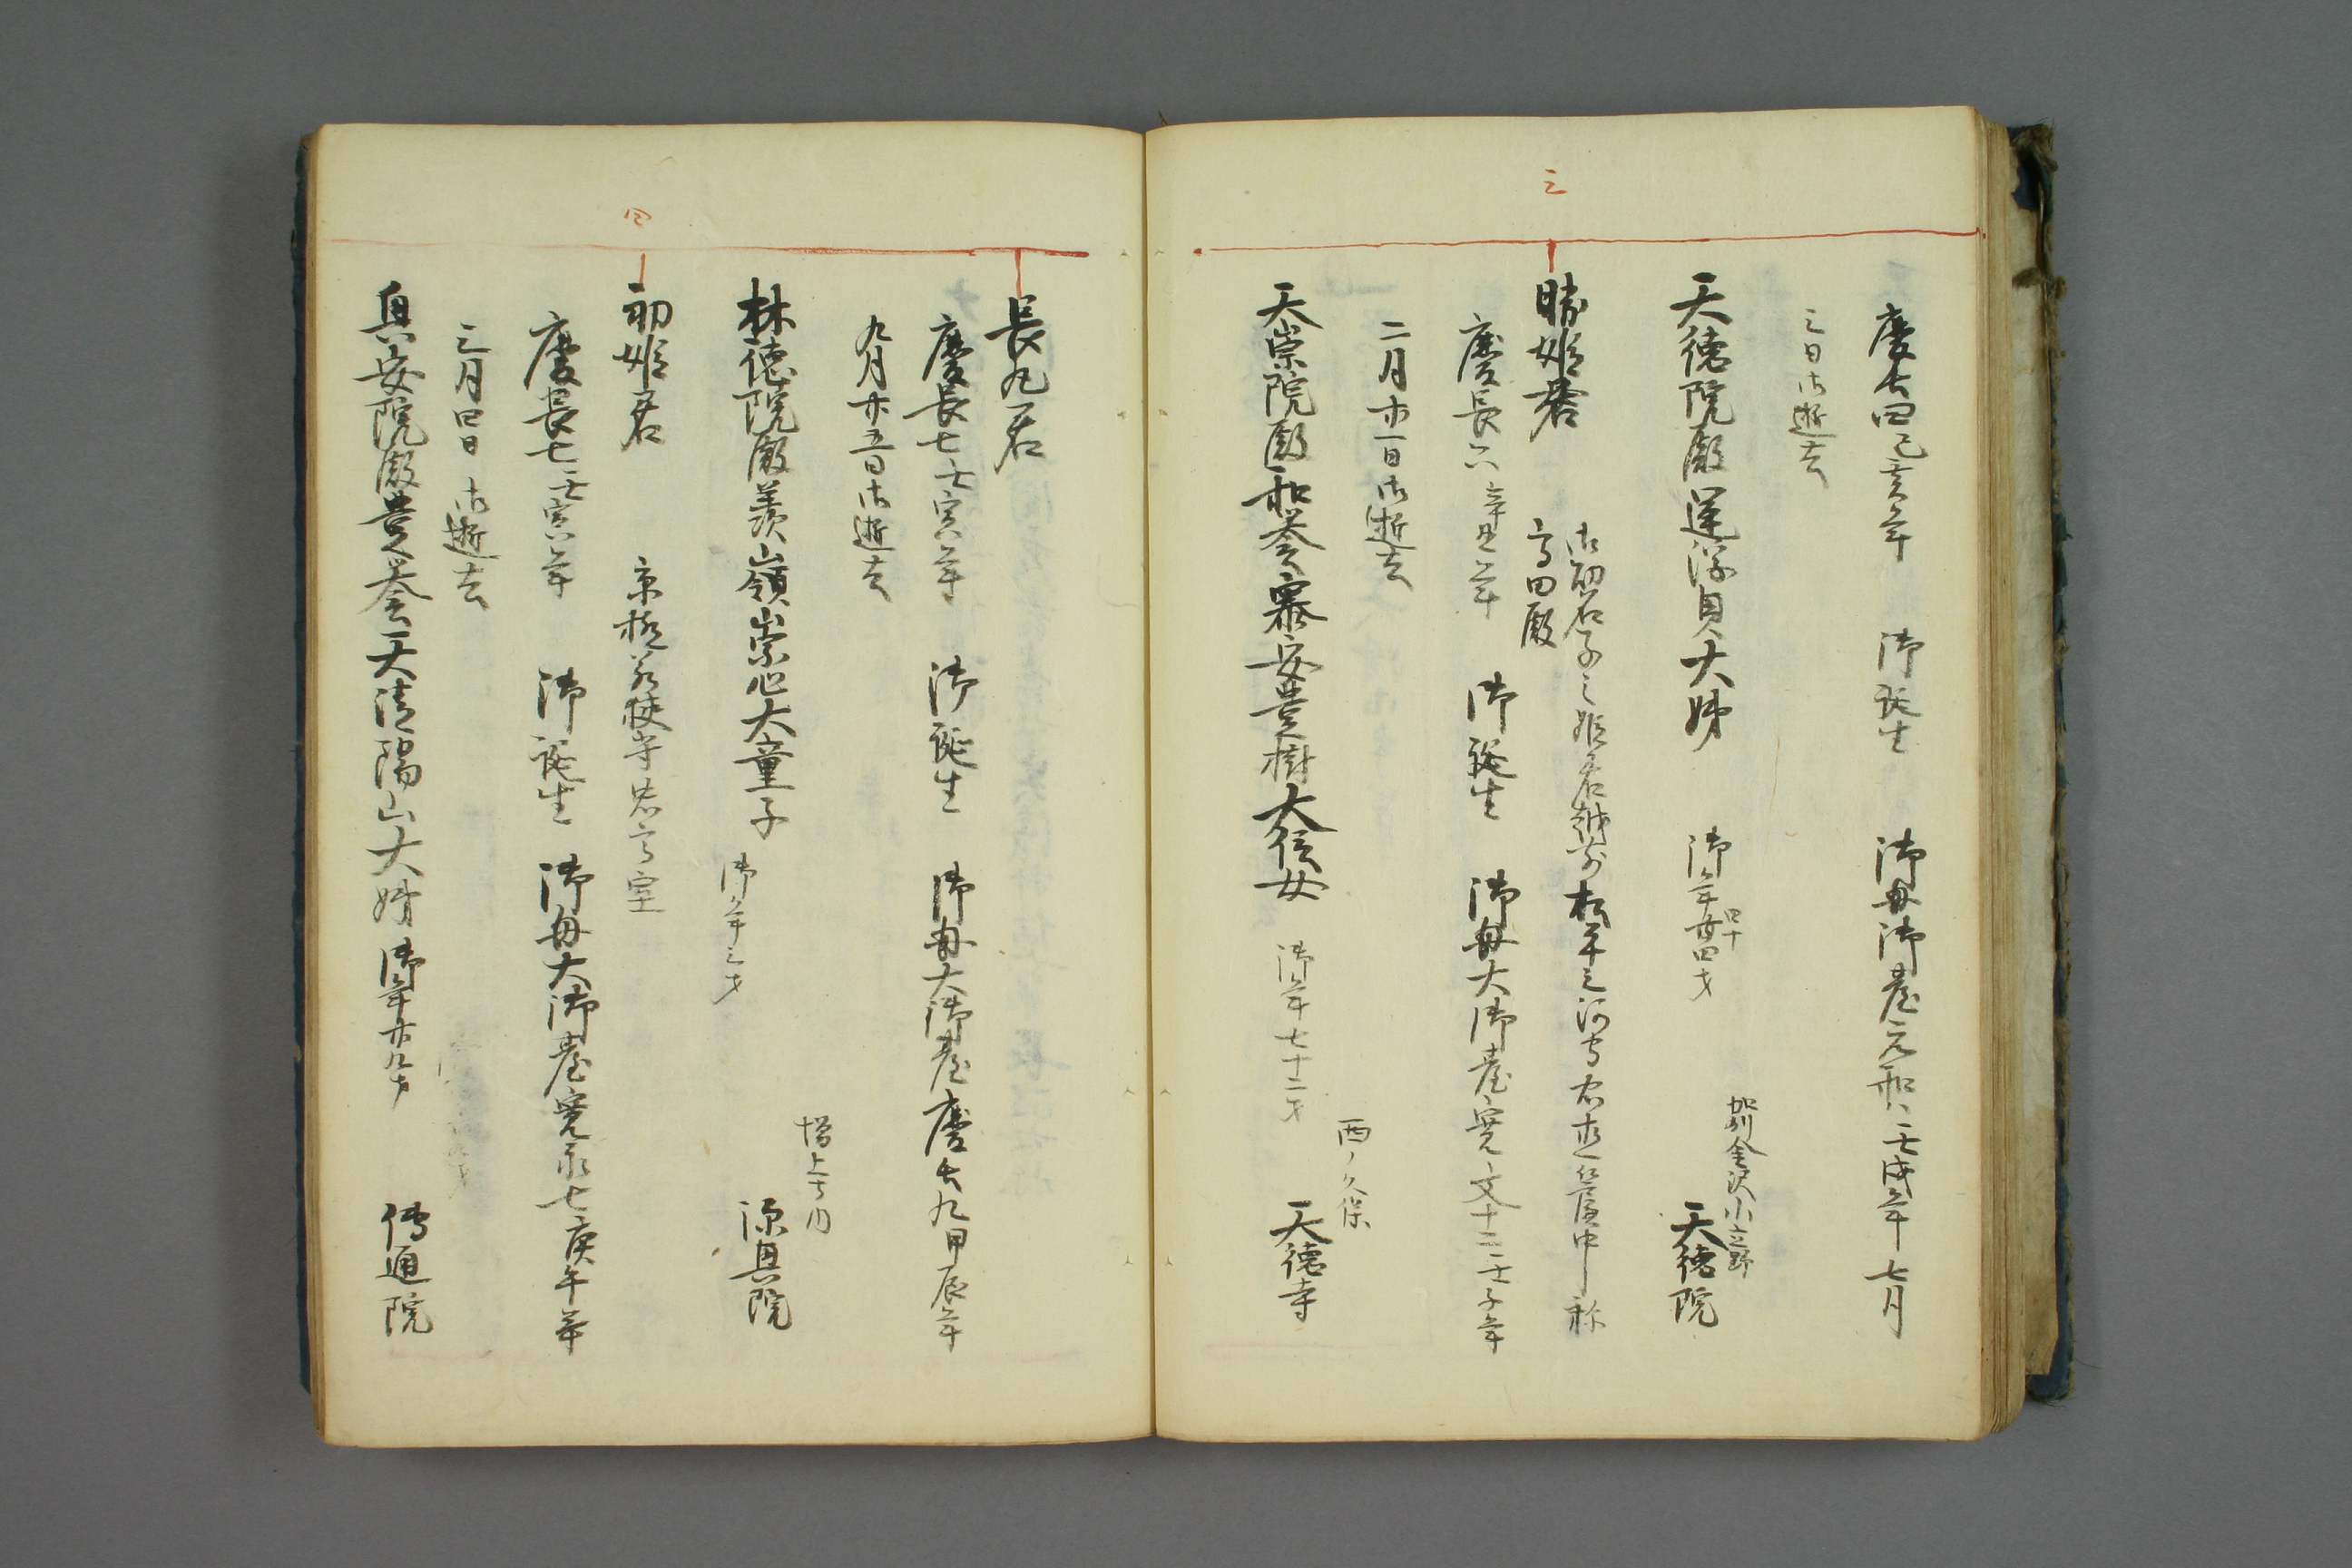 慶長四己亥年　御誕生　御母御臺元和八壬戌年七月
三日御逝去
天徳院殿運淳貞大姉　御年廿四才
四十
加州金沢小立野
天徳院
三
勝姫君
御初若子之姫君越前松平三河守忠直簾中称
高田殿
慶長六辛丑年　御誕生　御母大御臺寛文十二壬子年
二月廿一日御逝去
天崇院殿和誉泰安豊樹大信女　御年七十二才
西ノ久保
天徳寺
長丸君
慶長七壬寅年　御誕生　御母大御臺慶長九甲辰年
九月廿五日御逝去
林徳院殿羨嶺崇心大童子　御年三才
増上寺内
源興院
四
初姫君　京極若狭守忠高室
慶長七壬寅年　御誕生　御母大御臺寛永七庚午年
三月四日　御逝去
興安院殿豊誉天清陽山大姉　御年廿九才
傳通院